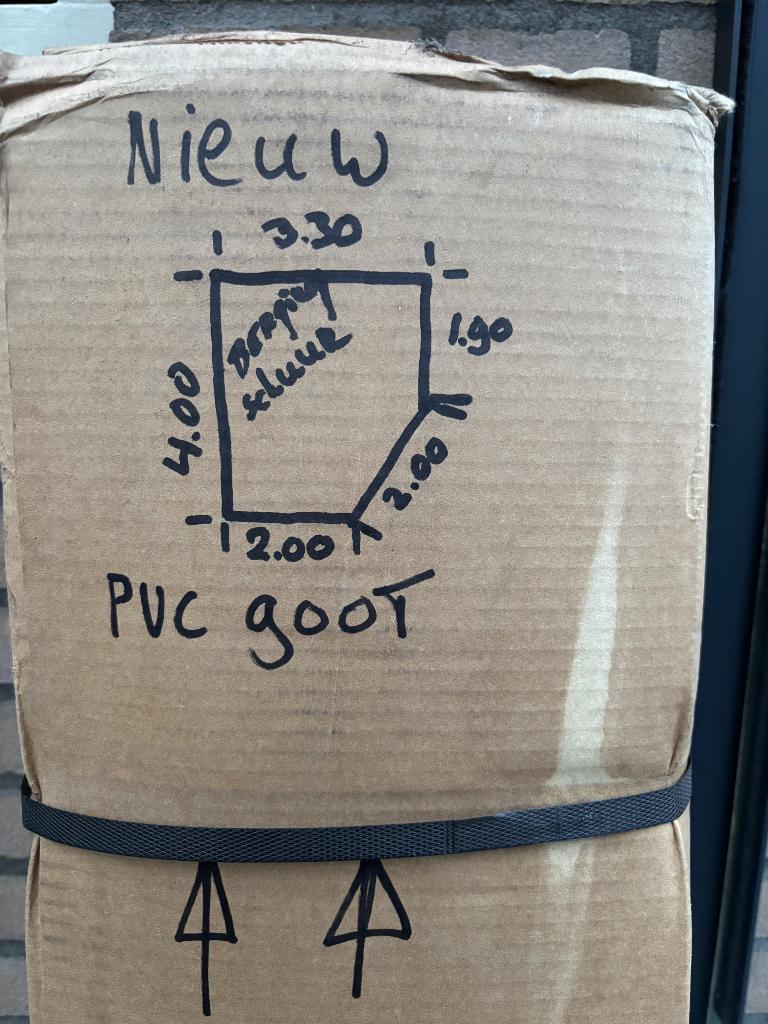 Nieuw
3.30
1.90
schuur
4.00
2.00
2.00
PVC gooT